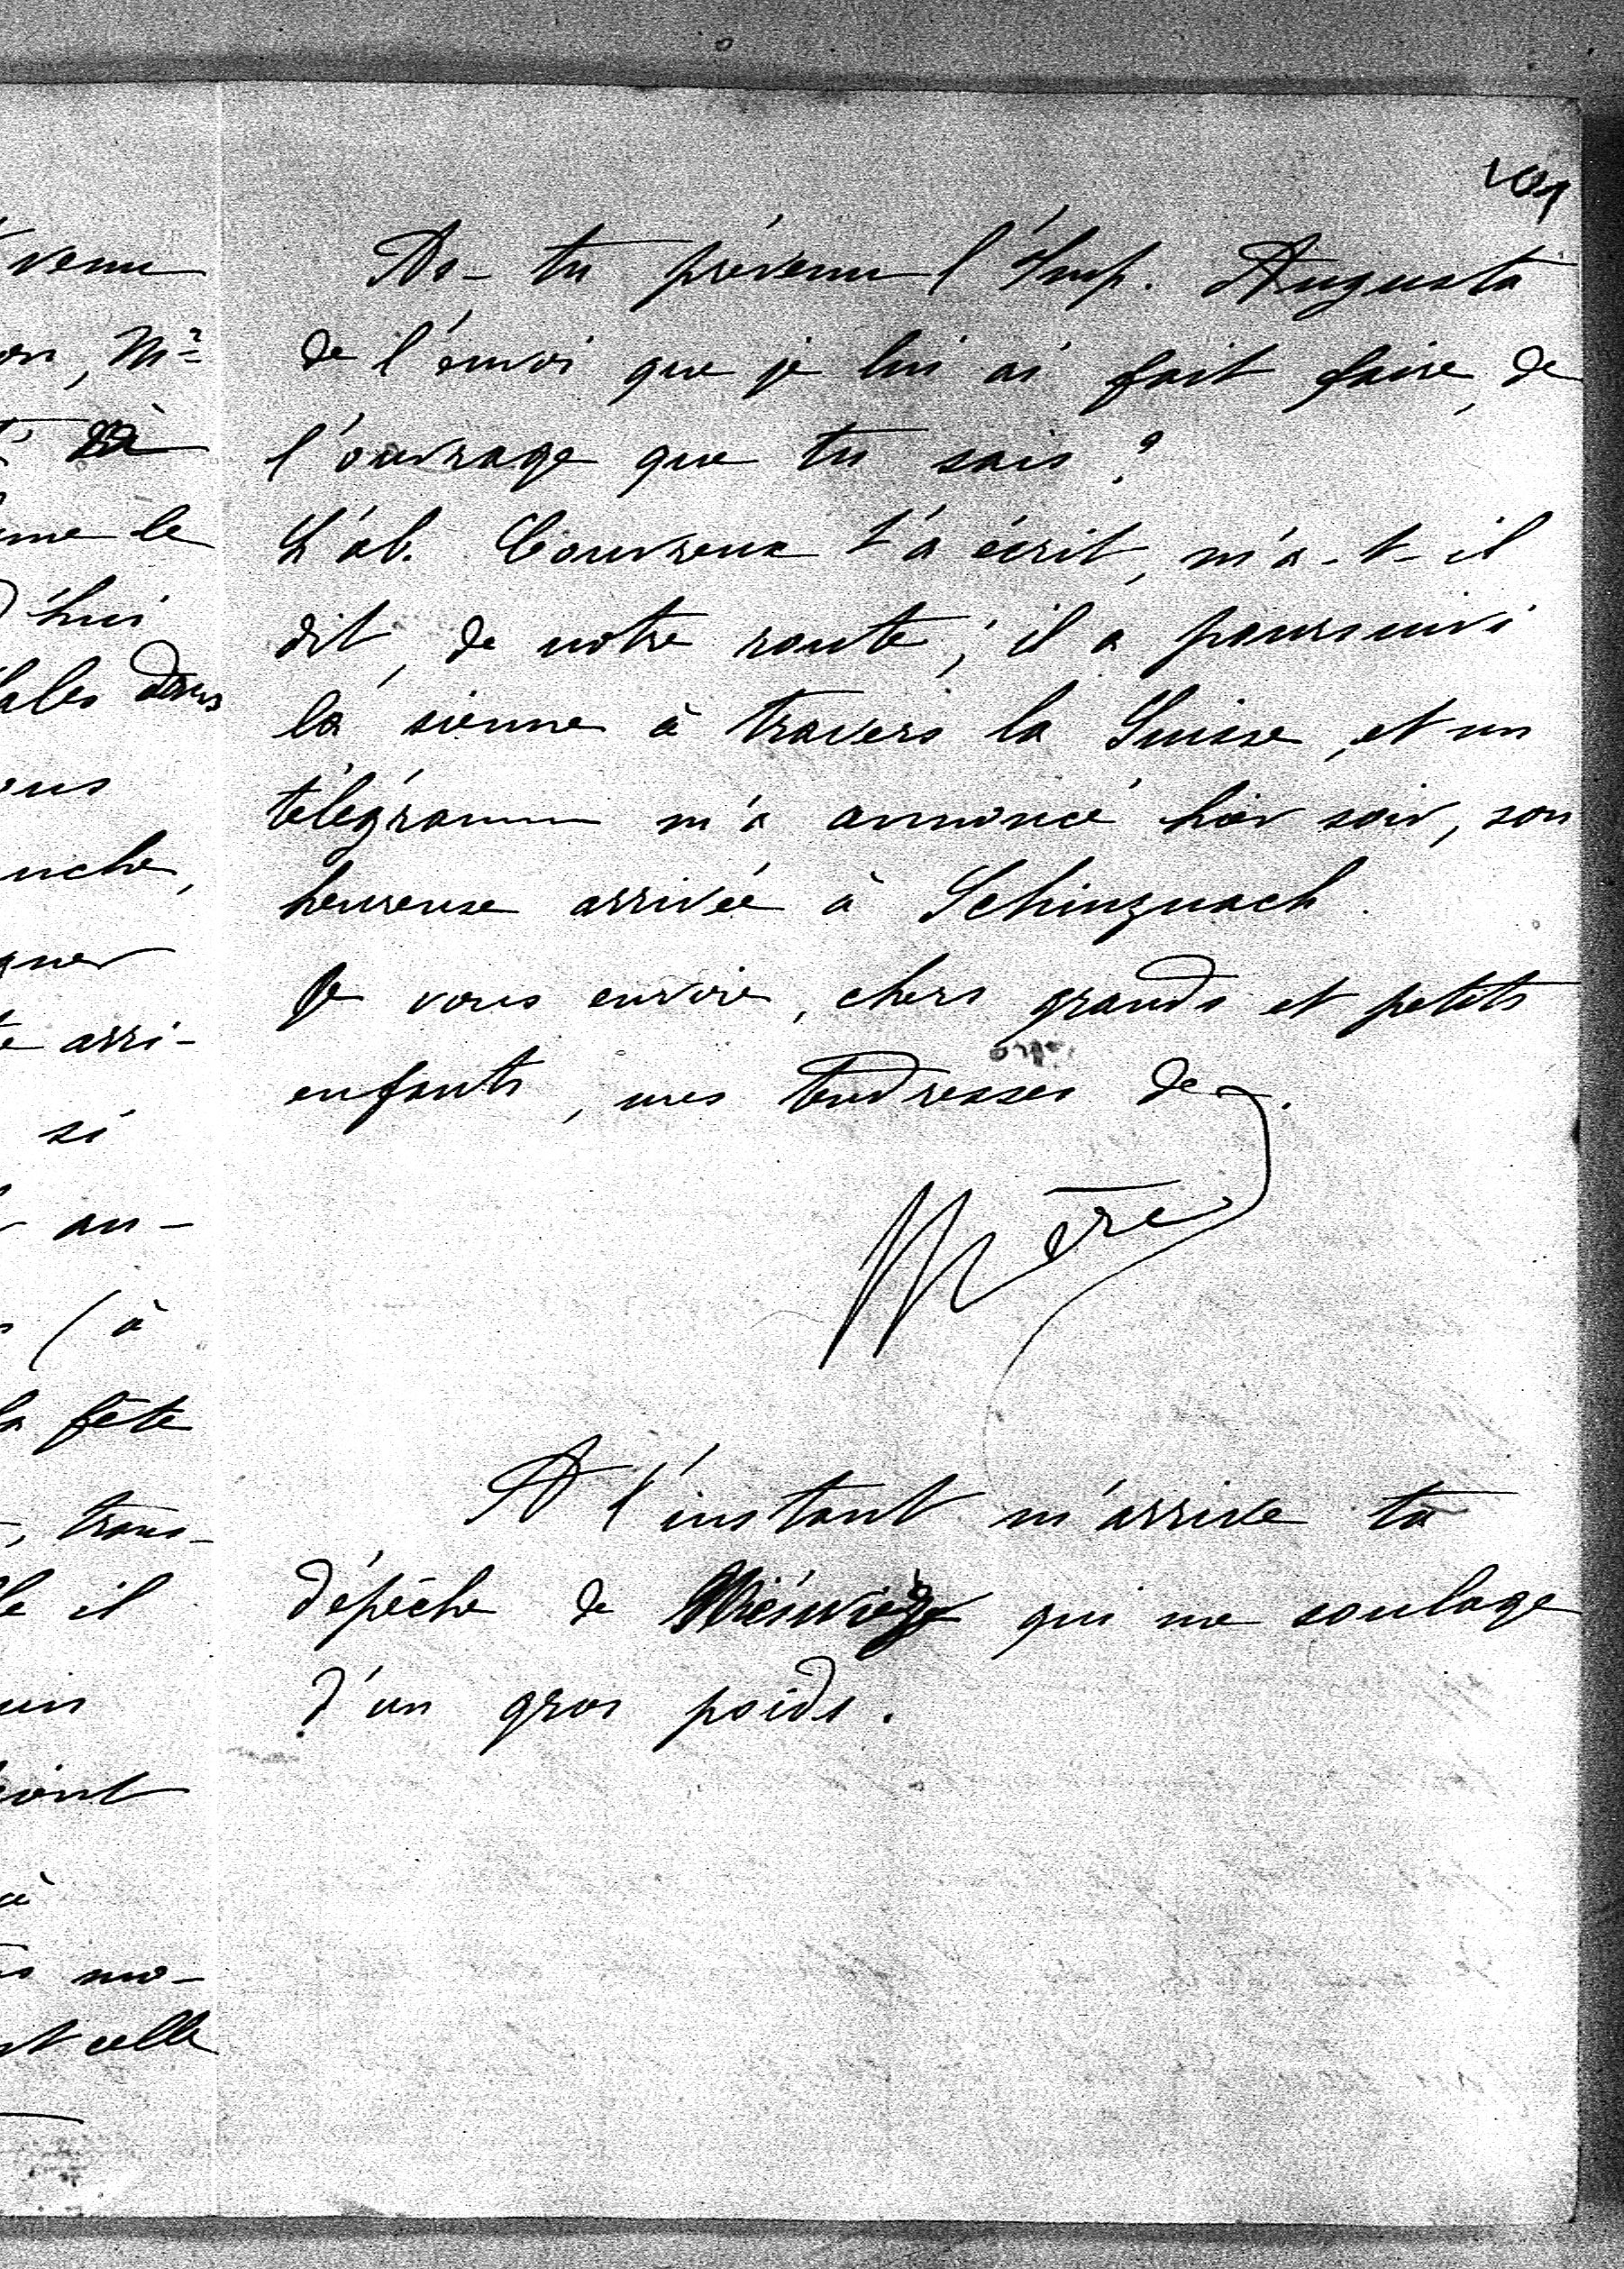 venu
on, Mr
à
me le
d'hui
ales dans
ous
anche,
gner
te arri-
si
au-
(à
la fête
, trans-
le il
uin
ront
à
mo-
nt celle
101
As-tu prévenu l'Imp. Augusta
de l'envoi que je lui ai fait faire, de
l'ouvrage que tu sais ?
L'ab. Couvreux t'a écrit, m'a-t-il
dit, de notre route ; il a poursuivi
la sienne à travers la Suisse, et un
télégramme m'a annoncé hier soir, son
heureuse arrivée à Schinznach.
Je vous envoie, chers grands et petits
enfants, mes tendresses de
Mère
A l'instant m'arrive ta
dépêche de qui me soulage
d'un gros poids.